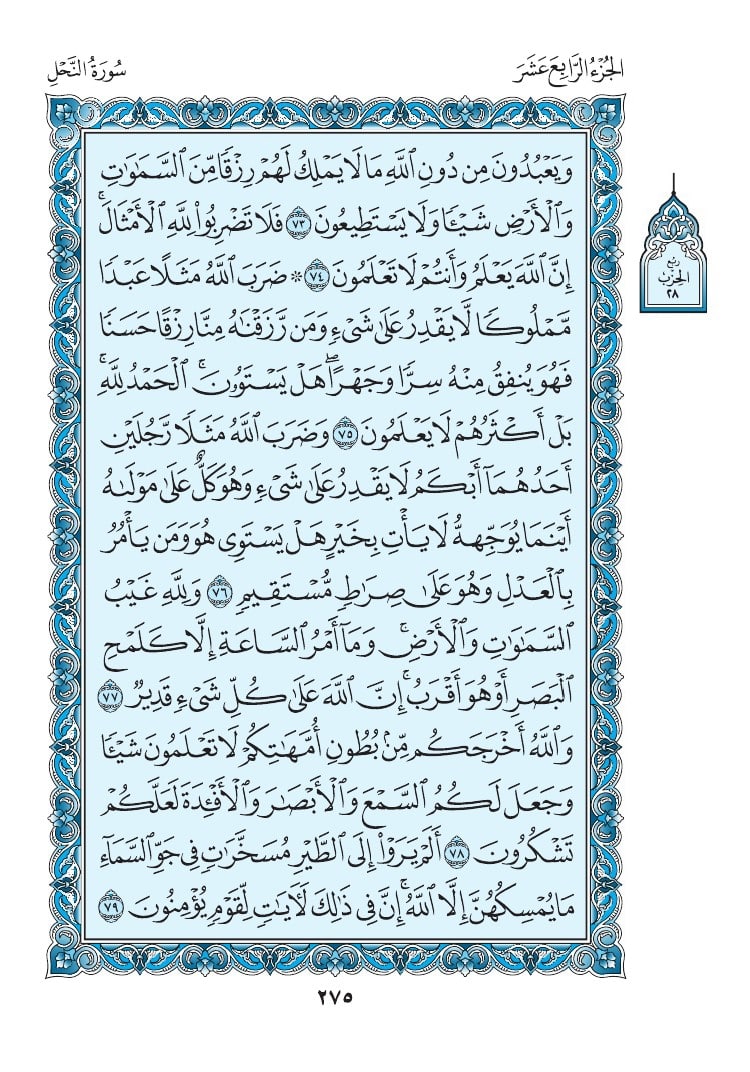 الجُزْءُ الرَّابِعَ عَشَرَ
سُورَةُ النَّحْلِ
وَيَعْبُدُونَ مِن دُونِ ٱللَّهِ مَا لَا يَمْلِكُ لَهُمْ رِزْقًا مِّنَ ٱلسَّمَٰوَٰتِ
وَٱلْأَرْضِ شَيْـًٔا وَلَا يَسْتَطِيعُونَ ٧٣ فَلَا تَضْرِبُوا۟ لِلَّهِ ٱلْأَمْثَالَ ۚ
إِنَّ ٱللَّهَ يَعْلَمُ وَأَنتُمْ لَا تَعْلَمُونَ ٧٤ ۞ ضَرَبَ ٱللَّهُ مَثَلًا عَبْدًا
مَّمْلُوكًا لَّا يَقْدِرُ عَلَىٰ شَىْءٍ وَمَن رَّزَقْنَٰهُ مِنَّا رِزْقًا حَسَنًا
فَهُوَ يُنفِقُ مِنْهُ سِرًّا وَجَهْرًا ۖ هَلْ يَسْتَوُۥنَ ۚ ٱلْحَمْدُ لِلَّهِ ۚ
بَلْ أَكْثَرُهُمْ لَا يَعْلَمُونَ ٧٥ وَضَرَبَ ٱللَّهُ مَثَلًا رَّجُلَيْنِ
أَحَدُهُمَآ أَبْكَمُ لَا يَقْدِرُ عَلَىٰ شَىْءٍ وَهُوَ كَلٌّ عَلَىٰ مَوْلَىٰهُ
أَيْنَمَا يُوَجِّههُّ لَا يَأْتِ بِخَيْرٍ هَلْ يَسْتَوِى هُوَ وَمَن يَأْمُرُ
بِٱلْعَدْلِ وَهُوَ عَلَىٰ صِرَٰطٍ مُّسْتَقِيمٍ ٧٦ وَلِلَّهِ غَيْبُ
ٱلسَّمَٰوَٰتِ وَٱلْأَرْضِ ۚ وَمَآ أَمْرُ ٱلسَّاعَةِ إِلَّا كَلَمْحِ
ٱلْبَصَرِ أَوْ هُوَ أَقْرَبُ ۚ إِنَّ ٱللَّهَ عَلَىٰ كُلِّ شَىْءٍ قَدِيرٌ ٧٧
وَٱللَّهُ أَخْرَجَكُم مِّنۢ بُطُونِ أُمَّهَٰتِكُمْ لَا تَعْلَمُونَ شَيْـًٔا
وَجَعَلَ لَكُمُ ٱلسَّمْعَ وَٱلْأَبْصَٰرَ وَٱلْأَفْـِٔدَةَ لَعَلَّكُمْ
تَشْكُرُونَ ٧٨ أَلَمْ يَرَوْا۟ إِلَى ٱلطَّيْرِ مُسَخَّرَٰتٍ فِى جَوِّ ٱلسَّمَآءِ
مَا يُمْسِكُهُنَّ إِلَّا ٱللَّهُ ۗ إِنَّ فِى ذَٰلِكَ لَءَايَٰتٍ لِّقَوْمٍ يُؤْمِنُونَ ٧٩
رُبع
الحِزْب
٢٨
٢٧٥